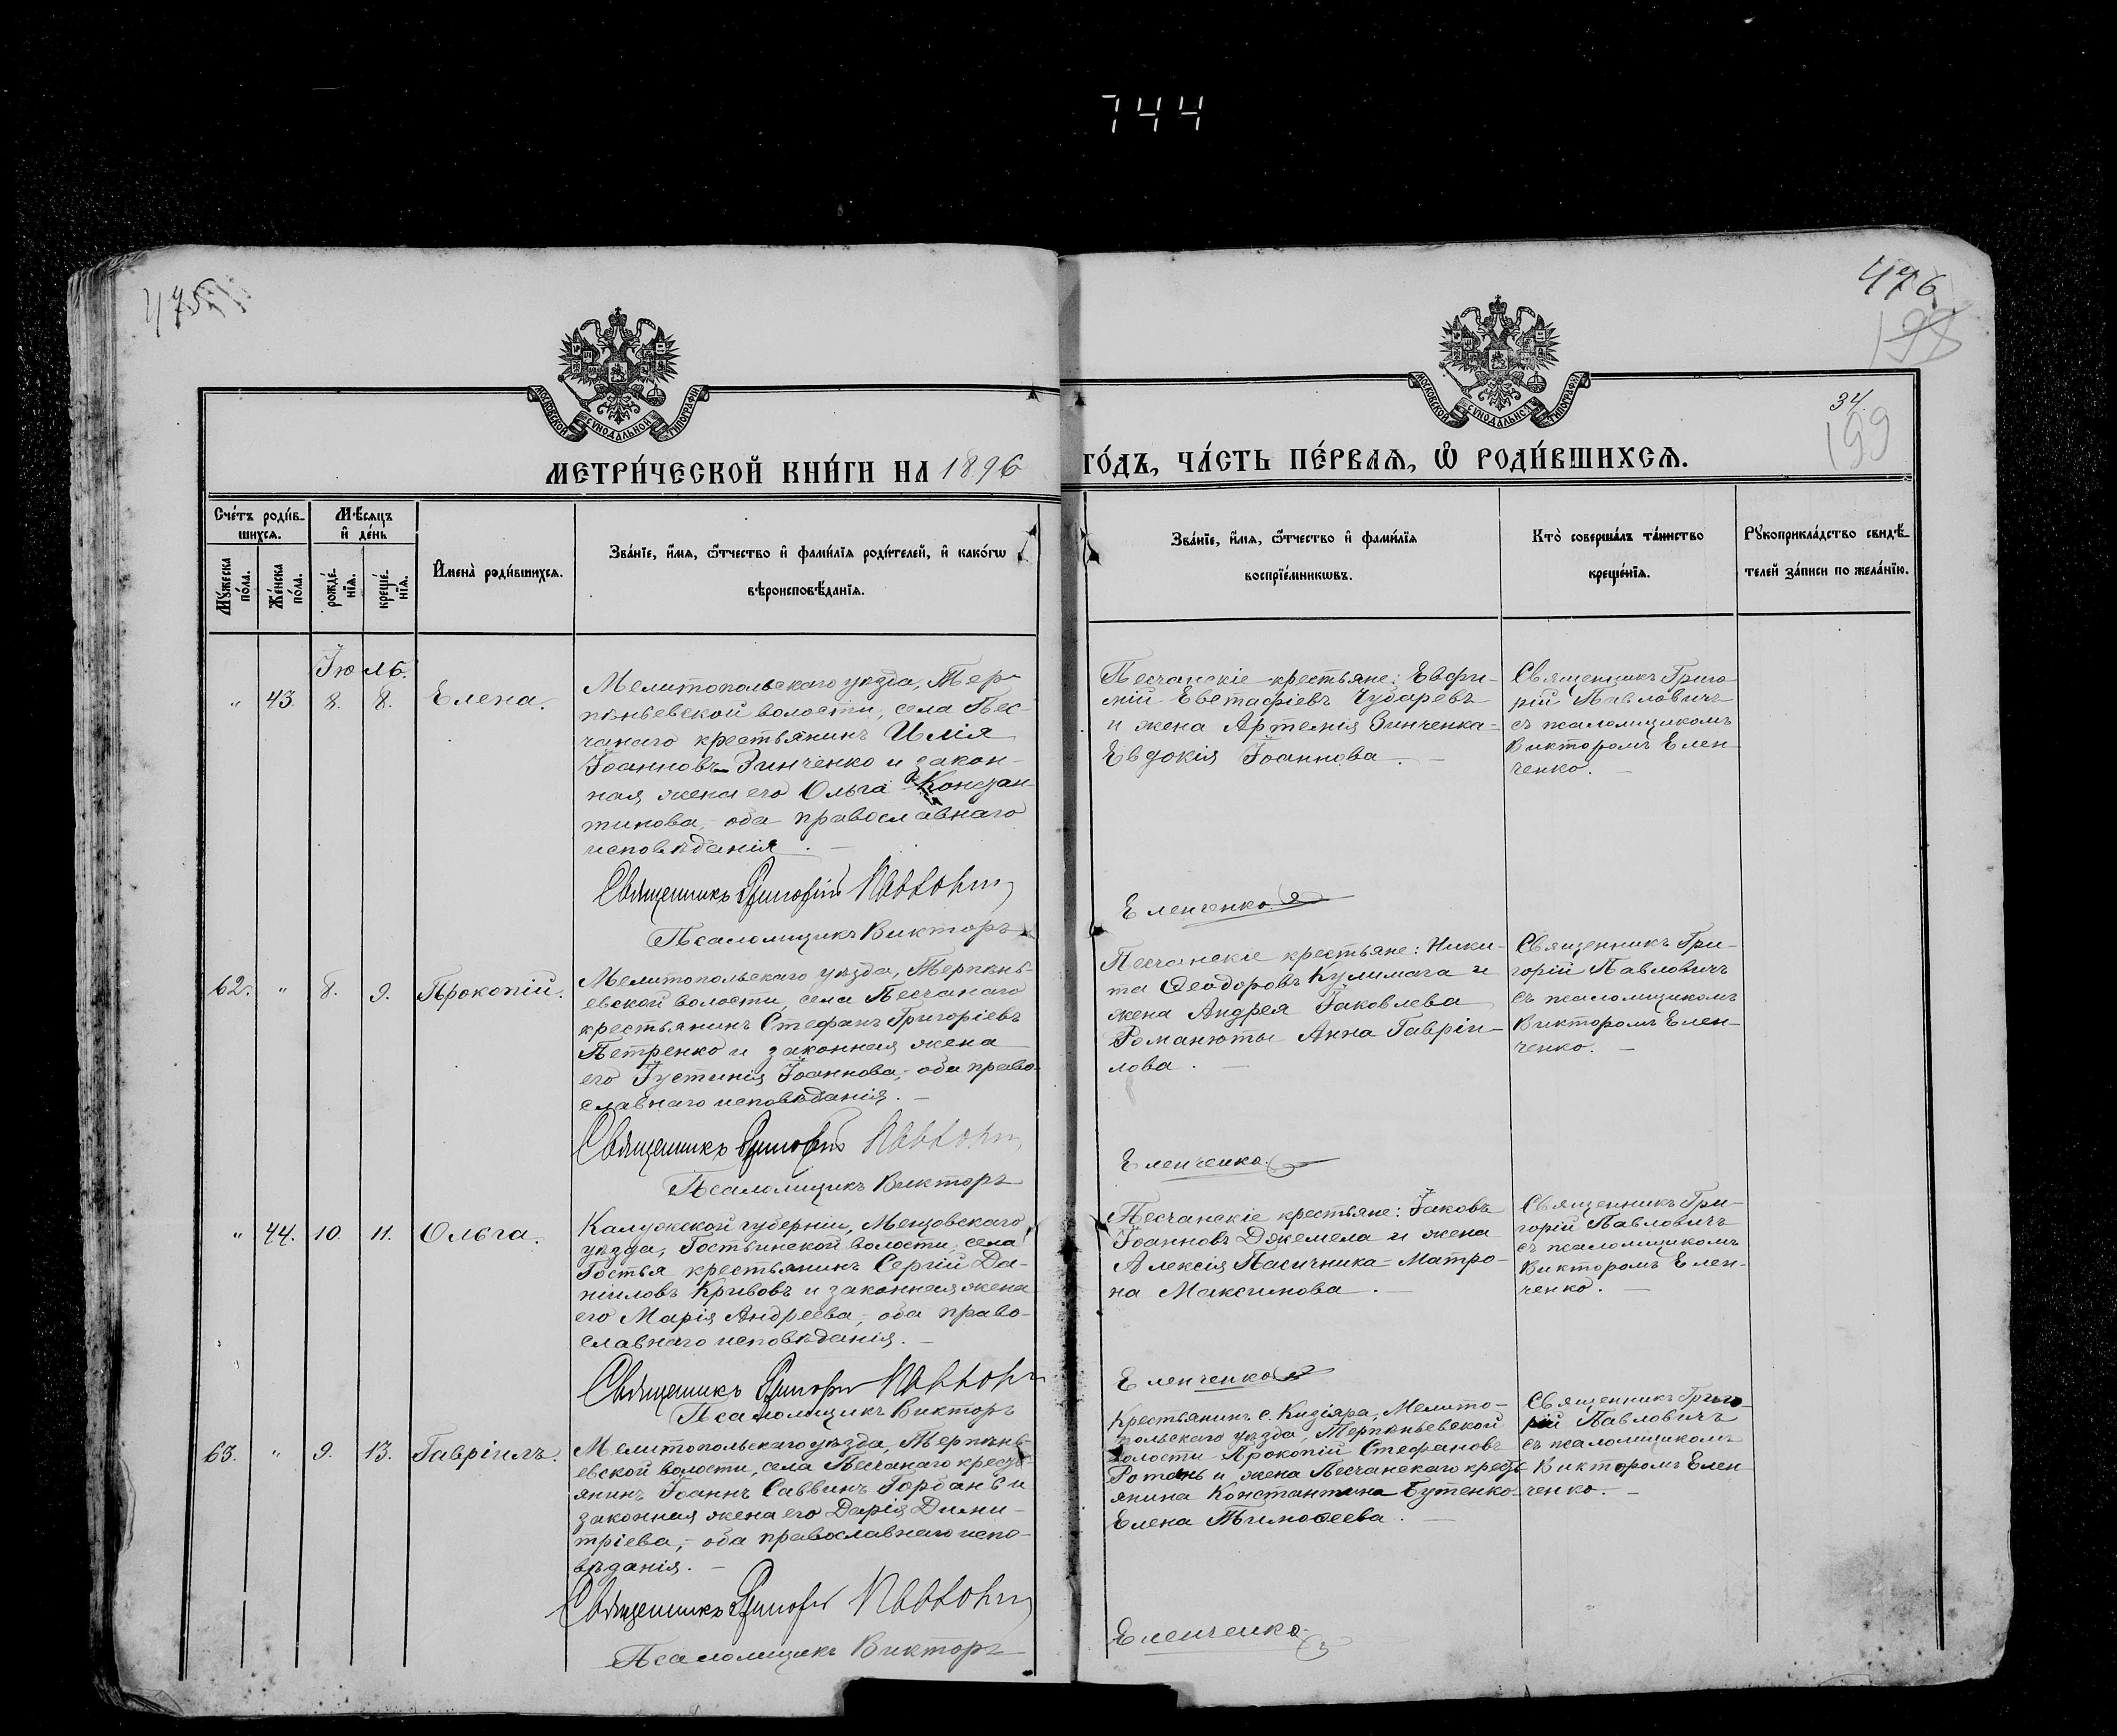 744
475
476
198
34.
199
МОСКОВСКОЙ СѴНОДАЛЬНОЙ ТИПОГРАФІИ
МОСКОВСКОЙ СѴНОДАЛЬНОЙ ТИПОГРАФІИ
МЕТРИ́ЧЕСКОЙ КНИ́ГИ НА 1896 ГО́ДЪ, ЧА́СТЬ ПЕ́РВАѦ, Ѡ҆ РОДИ́ВШИХСѦ.
Сче́тъ роди́в-
шихсѧ.
Мѣ́сѧцъ
и҆ де́нь
Мꙋ́жеска
по́ла.
Же́нска
по́ла.
рожде́-
нїѧ.
креще́-
нїѧ.
И҆мена̀ роди́вшихсѧ.
Зва́нїе, и҆́мѧ, ѻ҆́тчество и҆ фами́лїѧ роди́телей, и҆ како́гѡ
вѣроисповѣ́данїѧ.
Зва́нїе, и҆́мѧ, ѻ҆́тчество и҆ фами́лїѧ
воспрїе́мникѡвъ.
Кто̀ соверша́лъ та́инство
креще́нїѧ.
Рꙋкоприкла́дство свидѣ́-
телей за́писи по жела́нїю.
Іюль.
" 43. 8. 8. Елена.
Мелитопольскаго уѣзда, Тер-
пѣньевской волости, села Пес-
чанаго крестьянинъ Илія
Іоанновъ Зинченко и закон-
ная жена его Ольга Констан-
тинова, оба православнаго
исповѣданія. —
Священникъ Григорій Павловичъ
Псаломщикъ Викторъ
Песчанскіе крестьяне: Евфи-
мій Евстафіевъ Чубаревъ
и жена Артемія Зинченка-
Евдокія Іоаннова. —
Еленченко
Священникъ Григо
рій Павловичъ
съ псаломщикомъ
Викторомъ Елен-
ченко. —
62. " 8. 9. Прокопій.
Мелитопольскаго уѣзда, Терпѣнь-
евской волости, села Песчанаго
крестьянинъ Стефанъ Григоріевъ
Петренко и законная жена
его Іустинія Іоаннова, оба право-
славнаго исповѣданія. —
Священникъ Григорій Павловичъ
Псаломщикъ Викторъ
Песчанскіе крестьяне: Ники-
та Ѳеодоровъ Кулимага и
жена Андрея Іаковлева
Романюты Анна Гавріи-
лова. —
Еленченко
Священникъ Гри-
горій Павловичъ
съ псаломщикомъ
Викторомъ Елен-
ченко. —
" 44. 10. 11. Ольга.
Калужской губерніи, Мещовскаго
уѣзда, Гостьинской волости, села
Гостья крестьянинъ Сергій Да-
ніиловъ Кривовъ и законная жена
его Марія Андреева, оба право-
славнаго исповѣданія. —
Священникъ Григорій Павловичъ
Псаломщикъ Викторъ
Песчанскіе крестьяне: Іаковъ
Іоанновъ Джемела и жена
Алексія Пасичника-Матро-
на Максимова. —
Еленченко
Священникъ Гри-
горій Павловичъ
съ псаломщикомъ
Викторомъ Елен-
ченко. —
63. " 9. 13. Гавріилъ.
Мелитопольскаго уѣзда, Терпѣнь-
евской волости, села Песчанаго кресть
янинъ Іоаннъ Саввинъ Горбань и
законная жена его Дарія Дими-
тріева, оба православнаго испо-
вѣданія. —
Священникъ Григорій Павловичъ
Псаломщикъ Викторъ
Крестьянинъ с. Кизіяра, Мелито-
польскаго уѣзда, Терпѣньевской
волости Прокопій Стефановъ
Ротань и жена Песчанскаго кресть-
янина Константина Бутенко-
Елена Тимоѳеева. —
Еленченко
Священникъ Григо-
рій Павловичъ
съ псаломщикомъ
Викторомъ Елен
ченко. —